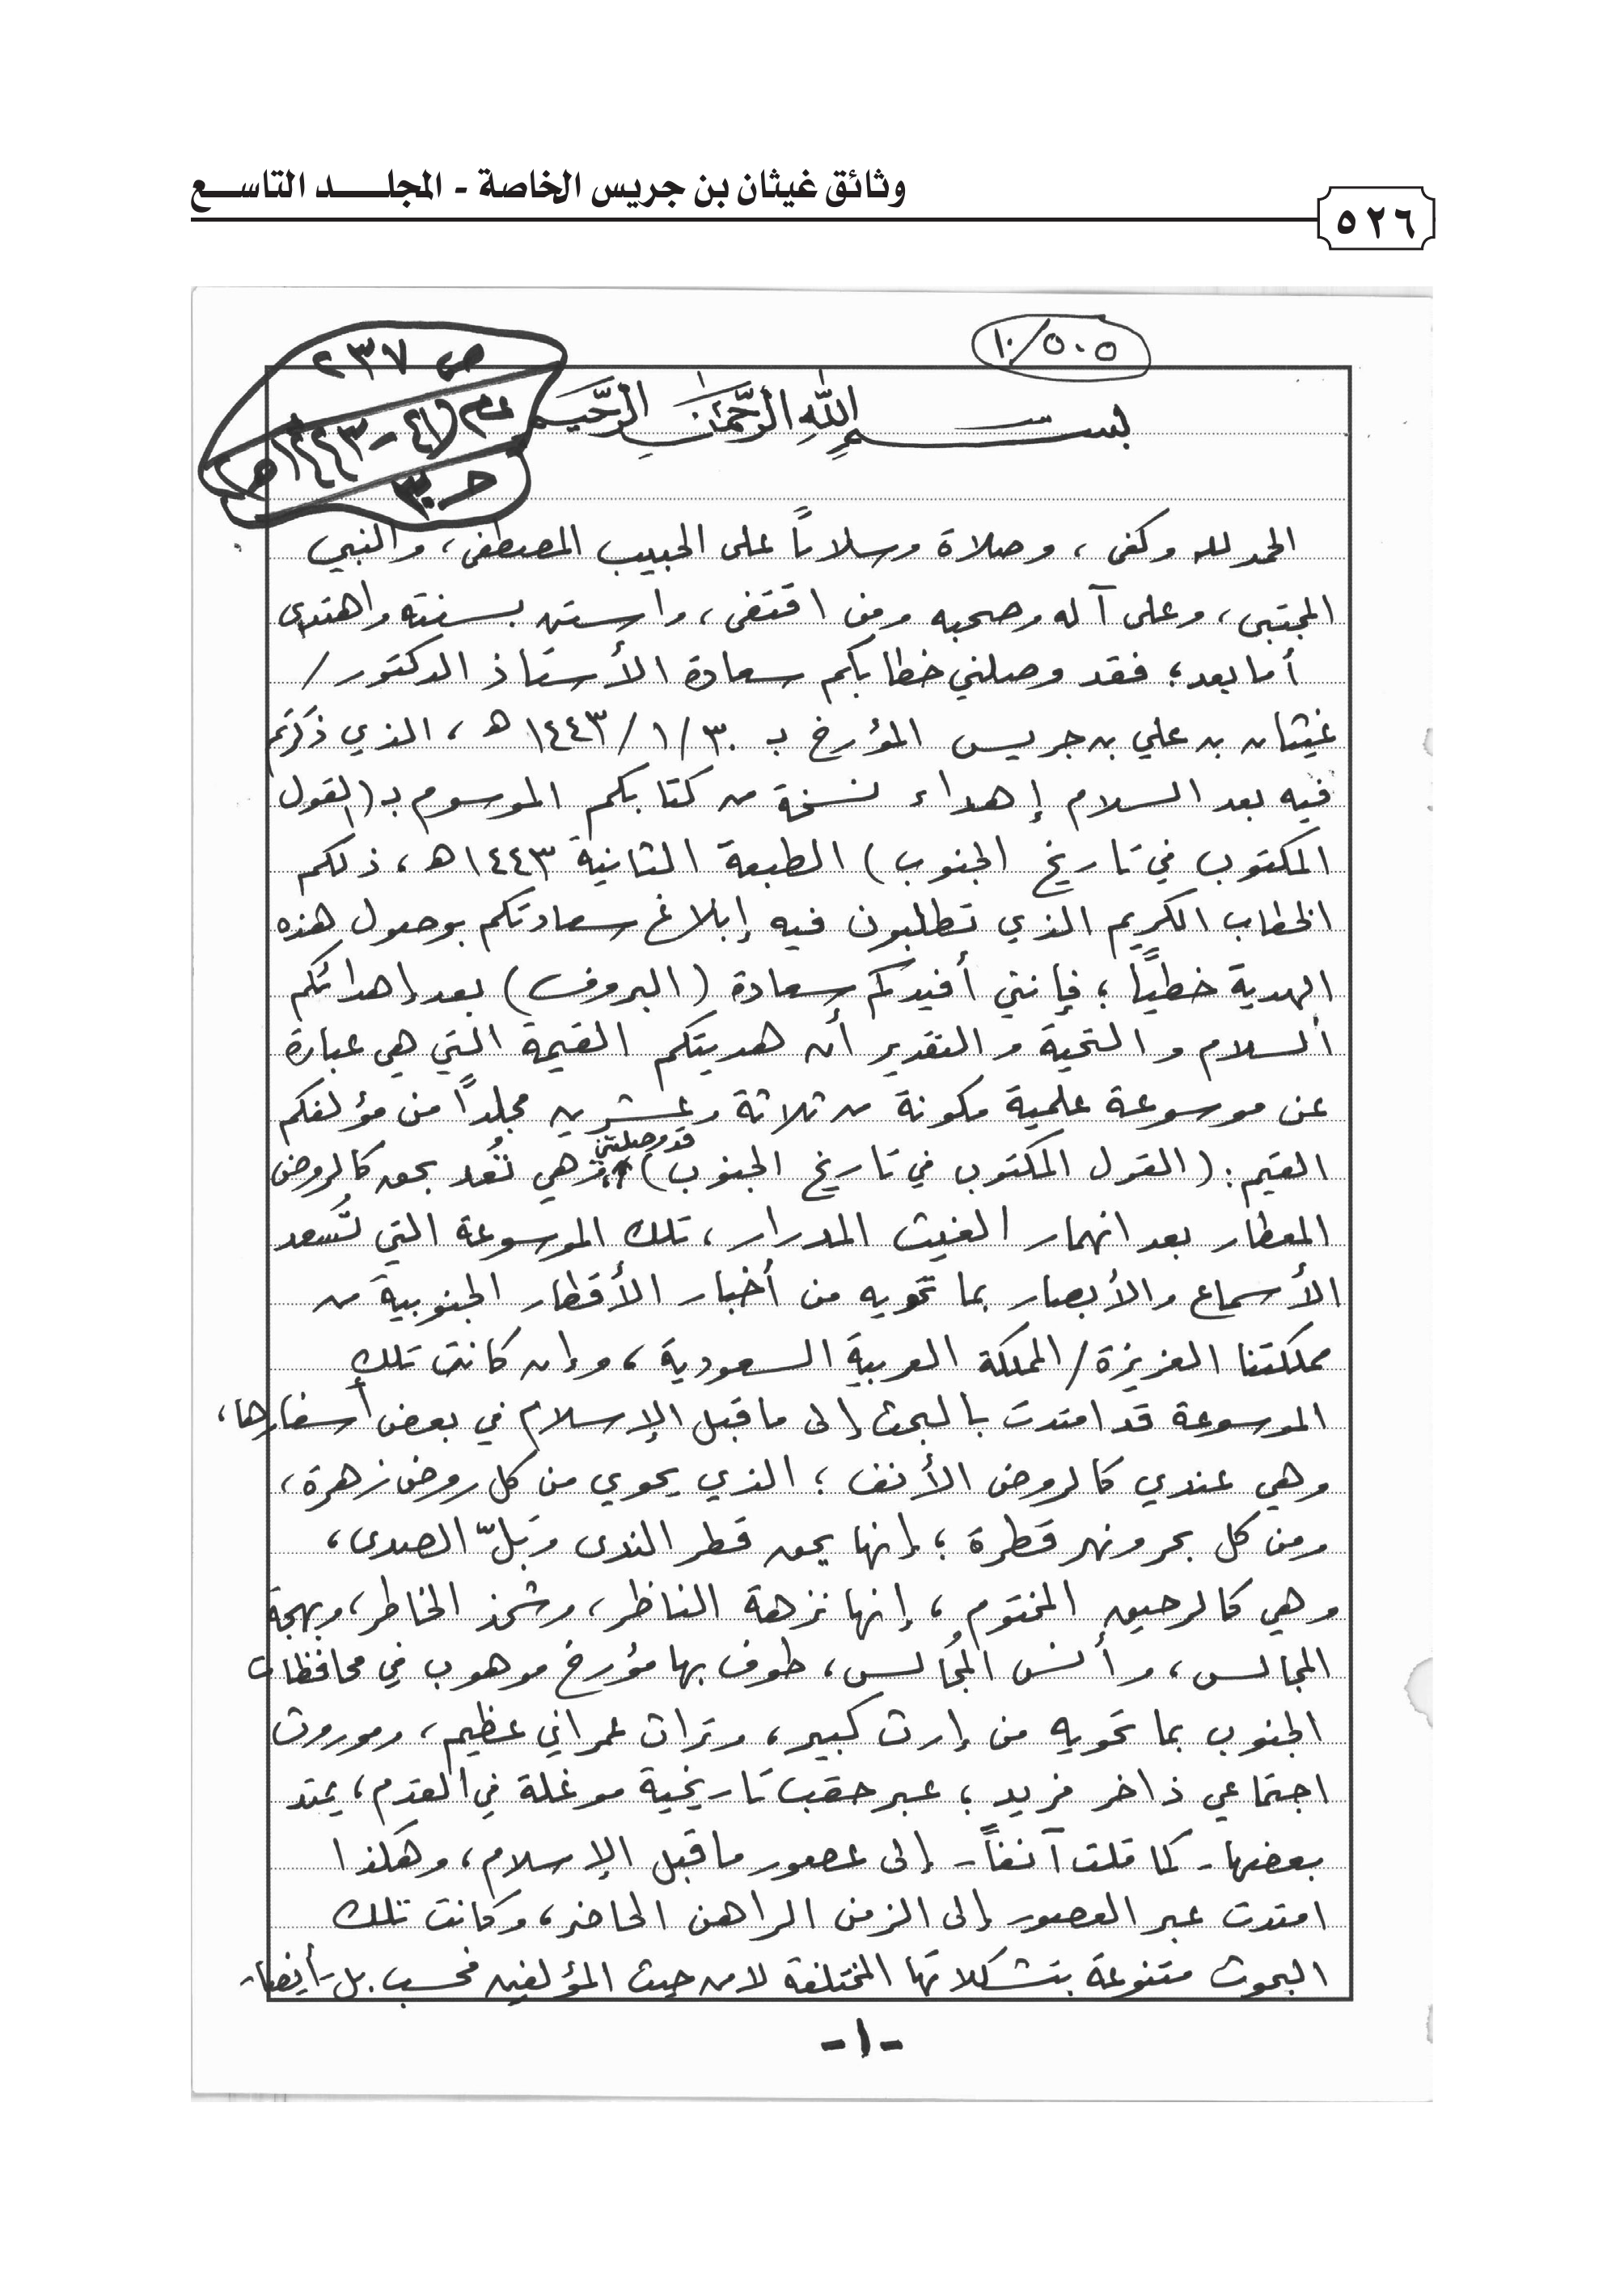 وثائق غيثان بن جريس الخاصة - المجلـــد التاســـع
٥٢٦
١٠/٥٠٥
ص ٢٣٧
١٤٤٣هـ
ج ٣٠
بسم الله الرحمن الرحيم
الحمد لله وكفى ، وصلاة وسلامًا على الحبيب المصطفى ، والنبي
المجتبى ، وعلى آله وصحبه ومن اقتفى ، واستن بسنته واهتدى
أما بعد ؛ فقد وصلني خطابكم سعادة الأستاذ الدكتور /
غيثان بن علي بن جريس المؤرخ بـ ٣٠ /١ /١٤٤٣ هـ ، الذي ذكرتم
فيه بعد السلام إهداء نسخة من كتابكم الموسوم بـ (القول
المكتوب في تاريخ الجنوب) الطبعة الثانية ١٤٤٣هـ ، ذلكم
الخطاب الكريم الذي تطلبون فيه إبلاغ سعادتكم بوصول هذه
الهدية خطيًا ؛ فإنني أفيدكم سعادة (البروف) بعد إهدائكم
السلام والتحية والتقدير أن هديتكم القيمة التي هي عبارة
عن موسوعة علمية مكونة من ثلاثة وعشرين مجلدًا من مؤلفكم
القيم : (القول المكتوب في تاريخ الجنوب) قد وصلتني وهي تُعد بحق كالروض
المعطار بعد انهمار الغيث المدرار ، تلك الموسوعة التي تُسعد
الأسماع والأبصار بما تحويه من أخبار الأقطار الجنوبية من
مملكتنا العزيزة / المملكة العربية السعودية ، وإن كانت تلك
الموسوعة قد امتدت بالبحث إلى ما قبل الإسلام في بعض أسفارها ،
وهي عندي كالروض الأنف ؛ الذي يحوي من كل روض زهرة ،
ومن كل بحر ونهر قطرة ؛ إنها بحق قطر الندى وبَلّ الصدى ،
وهي كالرحيق المختوم ، إنها نزهة الناظر ، وشحذ الخاطر ، وبهجة
المجالس ، وأنس المُجالس ، طوف بها مؤرخ موهوب في محافظات
الجنوب بما تحويه من إرث كبير ، وتراث عمراني عظيم ، وموروث
اجتماعي ذاخر فريد ؛ عبر حقب تاريخية موغلة في القدم ، يمتد
بعضها - كما قلت آنفاً - إلى عصور ما قبل الإسلام ، وهكذا
امتدت عبر العصور إلى الزمن الراهن الحاضر ، وكانت تلك
البحوث متنوعة بتشكلاتها المختلفة لا من حيث المؤلفين فحسب . بل - أيضا -
-١-